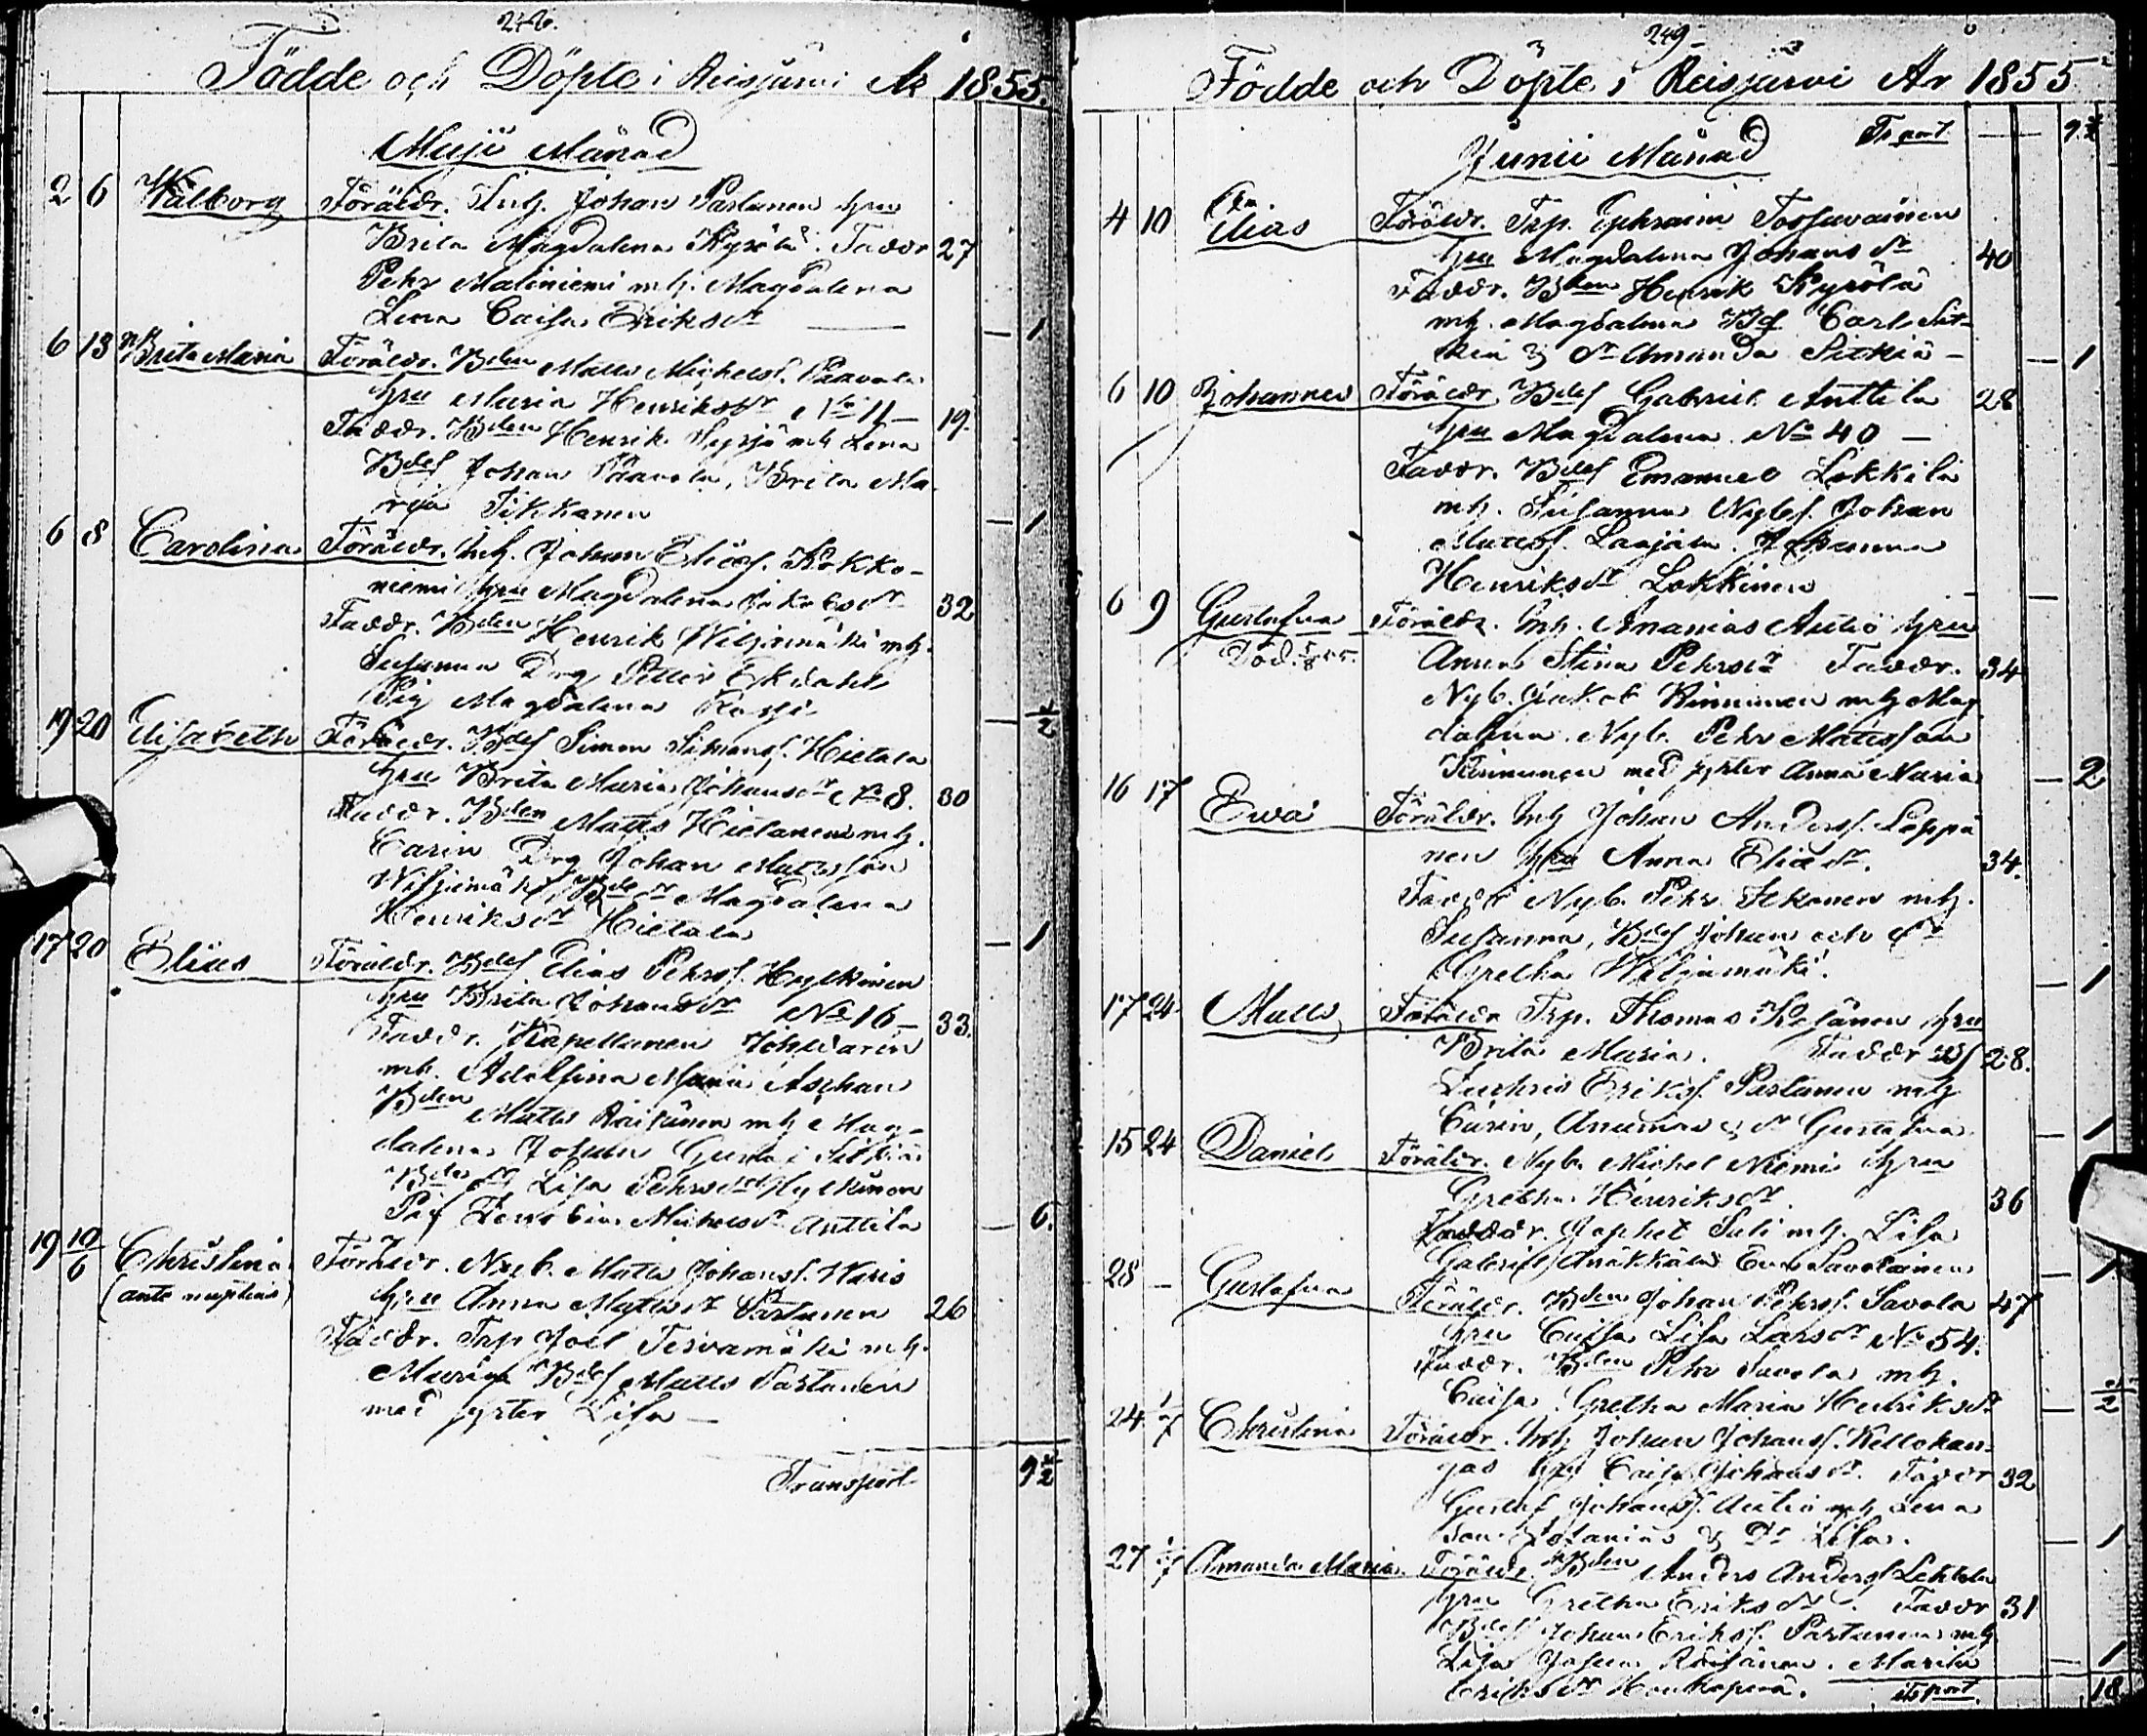 248.
Födde och Döpte i Reisjärvi År 1855.
Maji Månad
2 6 Walborg Föräldr. Inh. Johan Partanen hru
Brita Magdalena Kyrölä. Faddr 27
Pehr Maliniemi mh. Magdalena
Lena Caisa Eriksdr — 1
6 13 Brita Maria Föräldr. Bden Matts Michelss. Paavola
hru Maria Henriksdr No 11 — 19.
Faddr. Bden Henrik mh Lena
Bdes Johan Paavola, Brita Ma-
ria Tikkanen — 1
6 8 Carolina Föräldr. Inh. Johan Eliass. Kokko-
niemi hru Magdalena Jakobsdr 32
Faddr. Bden Henrik Wiljamäki mh.
Susanna Drg Petter Ekdahl
Pig Magdalena — 1/2
19 20 Elisabeth Föräldr. Bdes Simon Simonss. Hietala
hru Brita Maria Johansdr No 8. 30
Faddr. Bden Matts Hietanen mh.
Carin Drg Johan Mattsson
Wiljamäki, Bdedr Magdalena
Henriksdr Hietala — 1
17 20 Elias Föräldr. Bdes Elias Pehrss. Hylkinen
hru Brita Johansdr No 16 — 33.
Faddr. Kapellanen
mh. Adolfina Maria Aschan
Bden Matts Räisänen mh Mag-
dalena Johan Gustaf Sitkiä
Lisa Pehrsdr Hylkinen
Pig Michelsdr Anttila — 6.
19 10/6 Christina Föräldr. Nyb. Matts Johanss. Waris
(ante nuptias) hru Anna Mattsdr Partanen 26
Faddr. Trp Joel Tervamäki mh.
Maria Bdes Matts Partanen
med syster Lisa —
Transport 9 1/2
249
Födde och Döpte i Reisjärvi År 1855
Trsport — 9 1/2
Junii Månad
4 10 Elias Föräldr. Trp. Ephraim
hru Magdalena Johansdr 40
Faddr. Bden Henrik Kyrölä
mh. Magdalena Bds Carl Sit-
kiä & dr Amanda Sitkiä — 1
6 10 Johannes Föräldr Bdes Gabriel Anttila 28
hru Magdalena No 40 —
Faddr. Bdes Emanuel Lokkila
mh. Susanna Nybs. Johan
Mattss. Laajala. Johanna
Henriksdr Lokkinen —
6 9 Gustafva Föräldr. Inh. Ananias Autio hru
Död. Anna Stina Pehrsdr Faddr. 34
Nyb. Jakob Kinnunen mh Mag
dalena. Nyb. Pehr Mattsson
Kinnunen med syster Anna Maria — 2
16 17 Ewa Föräldr. Inh Johan Anderss. Leppä
nen hru Anna Eliædr. 34.
Faddr Nyb. Pehr mh.
Susanna, Bdes Johan och dr
Gretha Wiljamäki. — 1
17 24 Matts Föräldr Trp. Thomas hru
Brita Maria. Faddr 28.
Zachris Erikss. Partanen mh
Carin, Ananias & dr Gustafva — 1
15 24 Daniel Föräldr. Nyb. Michel Niemi hru
Gretha Henriksdr. 36
Faddr. Japhet Sali mh. Lisa
Gabriel Eva Savolainen — 1
28 — Gustafva Föräldr. Bden Johan Pehrss. Savola 47
hru Caisa Lisa Larsdr No 54.
Faddr. Bden Pehr Savola mh.
Caisa. Gretha Maria Henriksdr — 1/2
24 1/7 Christina Föräldr. Inh Johan Johanss. Kellokan-
gas hru Caisa Johansdr. Faddr 32
Gustaf Johanss. Autio mh Lena
son & dr Lisa. — 1
27 1/7 Amanda Maria. Föräldr. Bden Anders Anderss Lehtola
hru Gretha Eriksdr. Faddr 31
Bdes Johan Erikss. Partanen mh
Lisa Räisänen. Maria — 1
Eriksdr Honkaperä. Trsport. 18